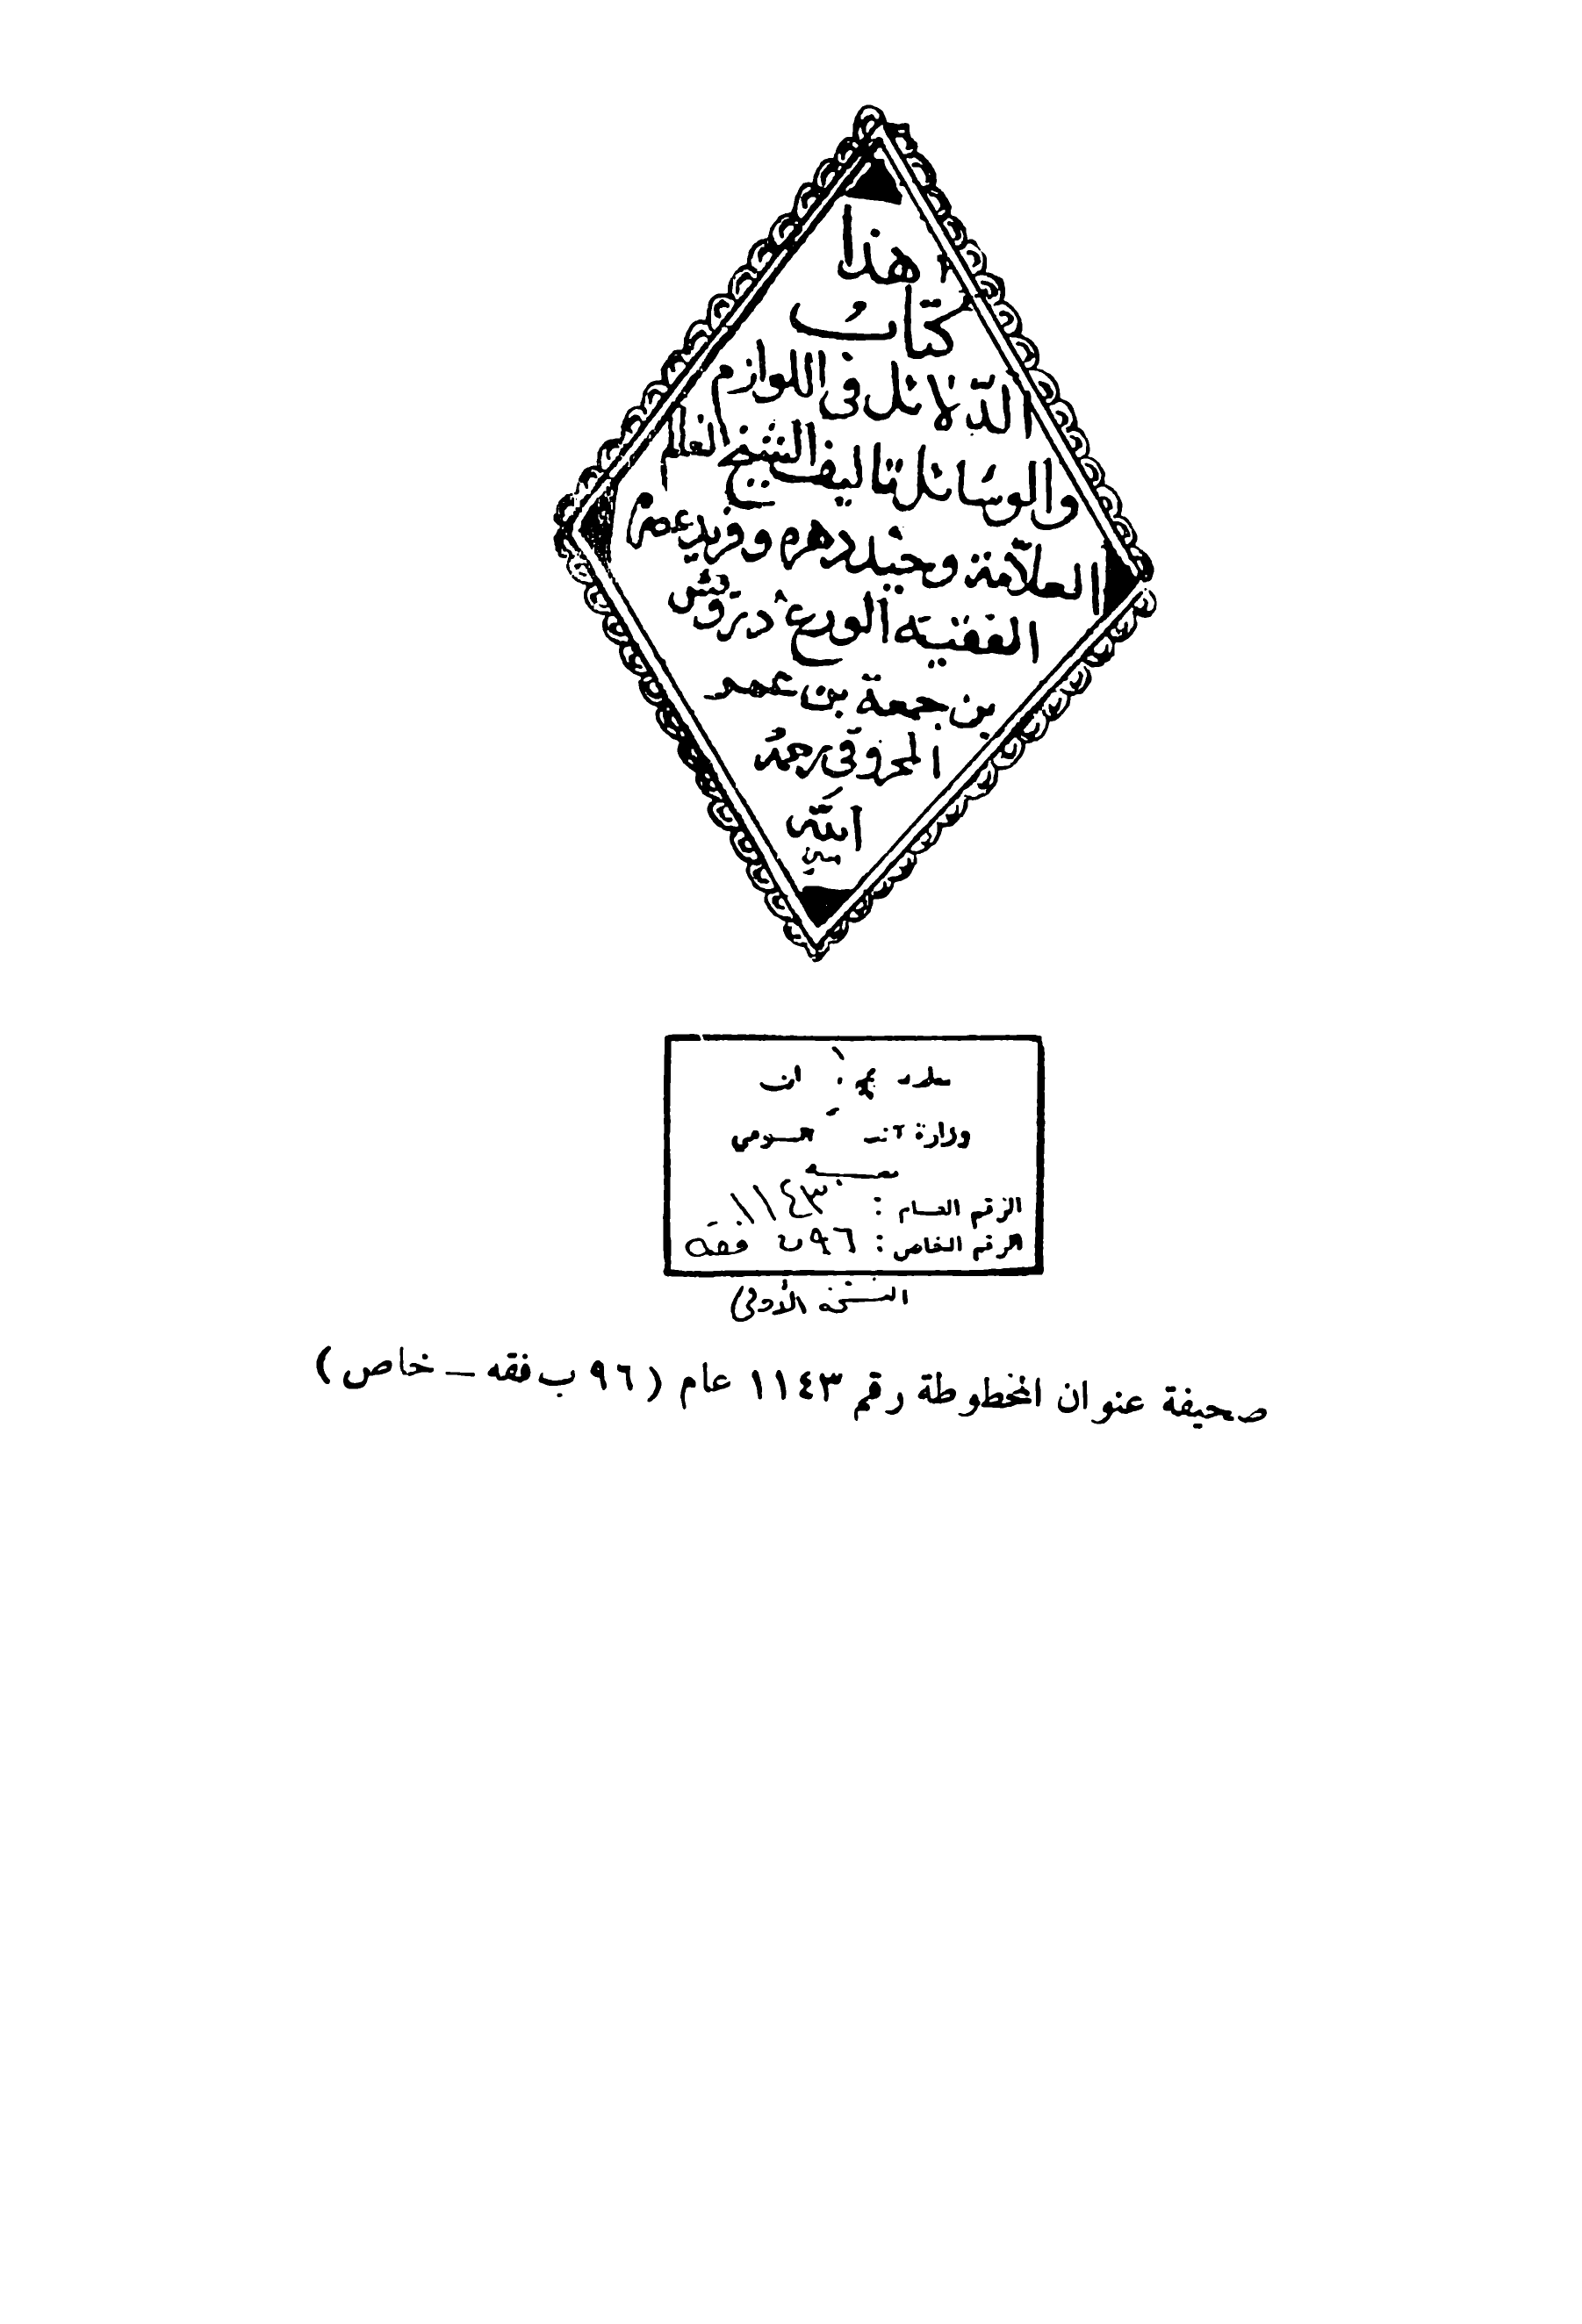 هذا
كتاب
الدّلائل في اللوازم
والوسائل تاليف الشيخ العالم
العلاّمة وحيد دهره وفريد عصره
الفقيه الورع درويش
بن جمعة بن عمر
المحروقي رحمه
الله
وزارة
الرقم العام : ١١٤٣
الرقم الخاص : ٩٦ ب فقه
النسخة الأولى
صحيفة عنوان المخطوطة رقم ١١٤٣ عام (٩٦ ب فقه – خاص)